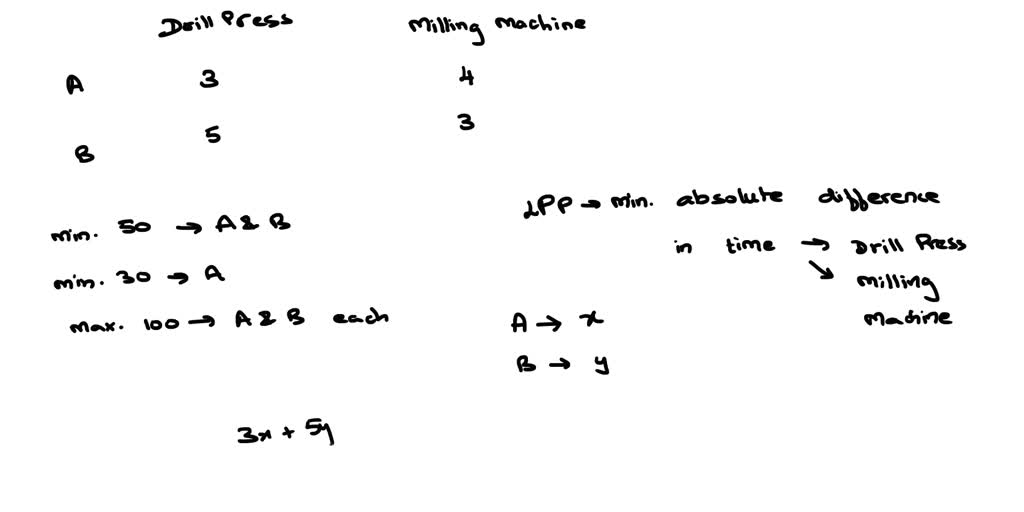 Drill Press Milling Machine
A 3 4
B 5 3
min. 50 → A & B
min. 30 → A
max. 100 → A & B each
LPP → min. absolute difference
in time → Drill Press
↘ milling
machine
A → x
B → y
3x + 5y